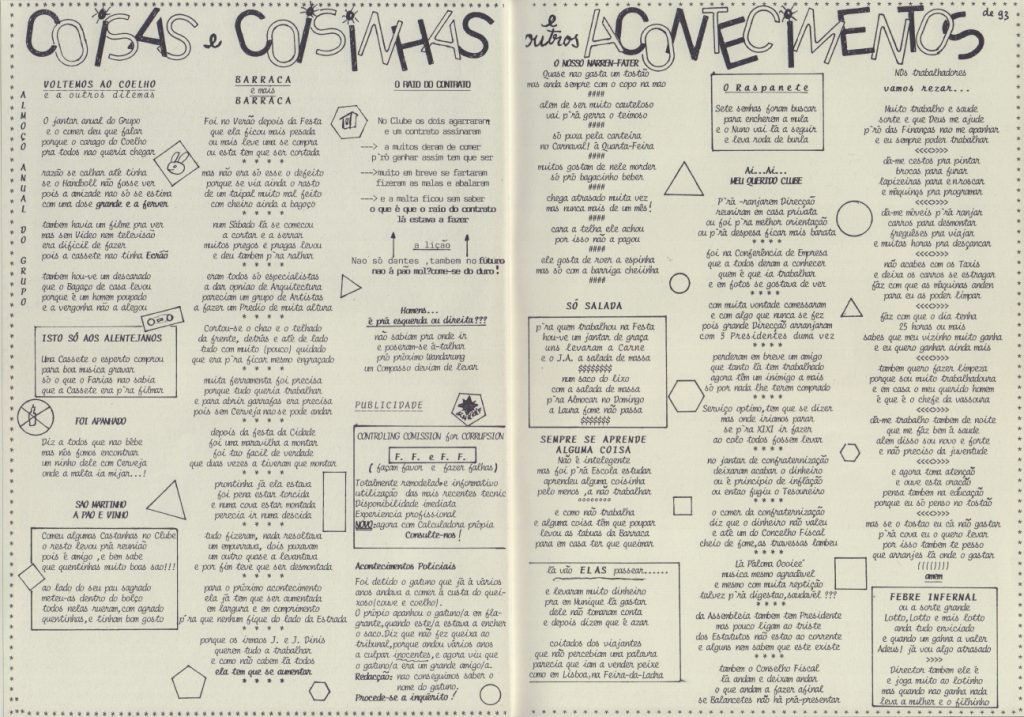 COISAS e COISINHAS
e outros ACONTECIMENTOS
de 93
ALMOÇO ANUAL DO GRUPO
VOLTEMOS AO COELHO
e a outros dilemas
O jantar anual do Grupo
e o comer deu que falar
porque o carago do Coelho
pra todos nao queria chegar
razão se calhar até tinha
se o Handboll não fosse ver
pois a amizade nao só se estima
com uma dose grande e a ferver
tambem havia um filme pra ver
mas sem Video nem televisão
era dificil de fazer
pois a cassete nao tinha Ecrão
tambem hou-ve um descarado
que o Bagaço de casa levou
porque é um homem poupado
e a vergonha não a alegou
ISTO SÓ AOS ALENTEJANOS
Uma Cassete o esperto comprou
para boa musica gravar
só o que o Farias nao sabia
que a Cassete era p'ra filmar
FOI APANHADO
Diz a todos que nao bêbe
mas nós fomos encontrar
um ninho dele com Cerveja
onde a malta ia mijar...!
SAO MARTINHO
A PAO E VINHO
Comeu algumas Castanhas no Clube
o resto levou prà reunião
pois é amigo ,e bem sabe
que quentinhas muito boas sao!!!
ao lado do seu pau sagrado
meteu-as dentro do bolço
todos nelas rueram,com agrado
quentinhas,e tinham bom gosto
BARRACA
e mais
BARRACA
Foi no Verão depois da Festa
que ela ficou mais pesada
ou mais leve uma se compra
ou esta tem que ser cortada
* * * *
mas não era só esse o defeito
porque se via ainda o rasto
de um taipal muito mal feito
com cheiro ainda a bagaço
* * * *
num Sábado lá se comecou
a cortar e a serrar
muitos pregos e pragas levou
e deu tambem p'ra ralhar
* * * *
eram todos só especialistas
a dar opniao de Arquitectura
pareciam um grupo de Artistas
a fazer um Predio de muita altura
* * * *
Cortou-se o chao e o telhado
da frente, detrás e até de lado
tudo com muito (pouco) quidado
que era p'ra ficar mesmo engraçado
* * * *
muita ferramenta foi precisa
porque tudo queria trabalhar
e para abrir garrafas era precisa
pois sem Cerveja nao se pode andar
* * * *
depois da festa da Cidade
foi uma maravilha a montar
foi tao facil de verdade
que duas vezes a tiveram que montar
* * * *
prontinha já ela estava
foi pena estar torcida
e nuna cova estar montada
perecia ir numa descida
* * * *
tudo fizeram, nada resoltava
um empurrava, dois puxavam
um outro quase a levantava
e por fim teve que ser desmontada
* * * *
para o próximo acontecimento
ela já tem que ser aumentada
em largura e em comprimento
p'ra que nenhum fique do lado da Estrada
* * * *
porque os irmaos J. e J. Dinis
querem tudo a trabalhar
e como não cabem lá todos
ela tem que se aumentar
* * * *
O RAIO DO CONTRATO
No Clube os dois agarraram
e um contrato assinaram
---> a muitos deram de comer
p'rò ganhar assim tem que ser
--->muito em breve se fartaram
fizeram as malas e abalaram
---> e a malta ficou sem saber
o que é que o raio do contrato
lá estava a fazer
a lição
Nao só dantes ,tambem no futuro
nao á pão mol?come-se do duro!
Homens...
è prà esquerda ou direita???
não sabiam pra onde ir
e poseram-se à-talhar
prò próximo Wandarung
um Compasso deviam de levar
PUBLICIDADE
CONTROLING COMISSION for CORRUPSION
F. F. e F. F.
( façam favor e fazer falhas)
Totalmente remodelado e informativo
utilização das mais recentes tecnic
Disponibilidade imediata
Experiencia profissional
NOVO:agora com Calculadora própia
Consulte-nos !
Acontecimentos Policiais
Foi detido o gatuno que já à vários
anos andava a comer à custa do quei-
xoso(couve e coelho).
O própio apanhou o gatuno/a em fla-
grante,quando este/a estava a encher
o saco.Diz que não fez queixa ao
tribunal,porque andou vários anos
a culpar inocentes,e agora viu que
o gatuno/a erá um grande amigo/a.
Redacção: nao conseguimos saber o
nome do gatuno.
Procede-se a inquérito !
O NOSSO NARREN-FATER
Quase nao gasta um tostão
mas anda sempre com o copo na mao
####
alem de ser muito cauteloso
vai p'rà gerra o teimoso
####
só puxa pela canteira
no Carnaval! à Quarta-Feira
####
muitos gostam de nele morder
só prò bagacinho beber
####
chega atrasado muita vez
mas nunca mais de um mês!
####
cara a telha ele achou
por isso não a pagou
####
ele gosta de roer a espinha
mas só com a barriga cheiinha
####
SÓ SALADA
p'ra quem trabalhou na Festa
hou-ve um jantar de graça
uns levaram a Carne
e o J.A. a salada de massa
$$$$$$$$
num saco do lixo
com a salada de massa
p'ra Almocar no Domingo
a Laura fome não passa
$$$$$$$
SEMPRE SE APRENDE
ALGUMA COISA
Não é intelegente
mas foi p'rà Escola estudar
aprendeu alguma coisinha
pelo menos ,a não trabalhar
°°°°°°°°°
e como não trabalha
e alguma coisa têm que poupar
levou as tabuas da Barraca
para em casa ter que queimar
lá vão ELAS passear......
e levaram muito dinheiro
pra em Munique lá gastar
dele não tomaram conta
e depois dizem que é azar
coitados dos viajantes
que não percebiam uma palavra
parecia que iam a vender peixe
como em Lisboa,na Feira-da-Ladra
O Raspanete
Sete senhas foram buscar
para encherem a mula
e o Nuno vai lá a seguir
e leva roda de burla
Ai...Ai...
MEU QUERIDO CLUBE
P'rà -ranjarem Direcção
reuniram em casa privata
ou foi p'rà melhor orientação
ou p'rà despesa ficar mais barata
* * * *
foi na Conferência de Empresa
que a todos deram a conhecer
quem é que ia trabalhar
e em fotos se gostava de ver
* * * *
com muita vontade comessaram
e com algo que nunca se fez
pois grande Direcção arranjaram
com 3 Presidentes duma vez
* * * *
perderam em breve um amigo
que tanto lá tem trabalhado
agora têm um inimigo a mais
só por nada lhe lhe terem comprado
* * * *
Serviço optimo,tem que se dizer
mas onde iriamos parar
se p'rà XIXI ir fazer
ao colo todos fossem levar
* * * *
no jantar de confraternização
deixaram acabar o dinheiro
ou è principio de inflação
ou entao fugiu o Tesoureiro
* * * *
o comer da confraternização
diz que o dinheiro não valeu
e até um do Concelho Fiscal
cheio de fome,as travessas lambeu
* * * *
Là Paloma Oooieé'
musica mesmo agradável
e mesmo com muita reptição
talvez p'rà digestao,saudável ???
* * * *
da Assembleia tambem tem Presidente
mas pouco ligam ao triste
dos Estatutos não estao ao corrente
e alguns nem sabem que este existe
* * * *
tambem o Conselho Fiscal
là andam e deixam andar
o que andam a fazer afinal
se Balancetes não há prà-presentar
Nós trabalhadores
vamos rezar...
Muito trabalho e saude
sorte e que Deus me ajude
p'rò das Finanças nao me apanhar
e eu sempre poder trabalhar
<<<◇>>>
dà-me cestos pra pintar
brocas para furar
lapizeiras para enroscar
e máquinas pra programar
<<<◇>>>
dà-me móveis p'rà ranjar
carros para desmontar
freguêses pra viajar
e muitas horas pra desçancar
<<<◇>>>
não acabes com os Taxis
e deixa os carros se estragar
faz com que as máquinas anden
para eu as poder limpar
<<<◇>>>
faz com que o dia tenha
25 horas ou mais
sabes que meu vizinho muito ganha
e eu quero ganhar ainda mais
<<<◇>>>
tambem quero fazer limpeza
porque sou muito trabalhadoura
e em casa o meu querido homem
é que è o chefe da vassoura
<<<◇>>>
dà-me trabalho tambem de noite
que me faz bem à saude
alem disso sou novo e forte
e não preciso da juventude
<<<◇>>>
e agora toma atenção
e ouve esta oracão
pensa tambem na educação
porque eu só penso no tostão
<<<◇>>>
mas se o tostao eu cà não gastar
p'rà cova eu o quero levar
por isso tambem te pesso
que arranjes là onde o gastar
(((())))
amen
FEBRE INFERNAL
ou a sorte grande
Lotto,Lotto e mais lotto
anda tudo enviciado
e quando um ganha a valer
Adeus! já vou algo atrasado
>>>>
Director tambem ele è
e joga muito ao lotinho
mas quando nao ganha nada
leva a mulher e o filhinho